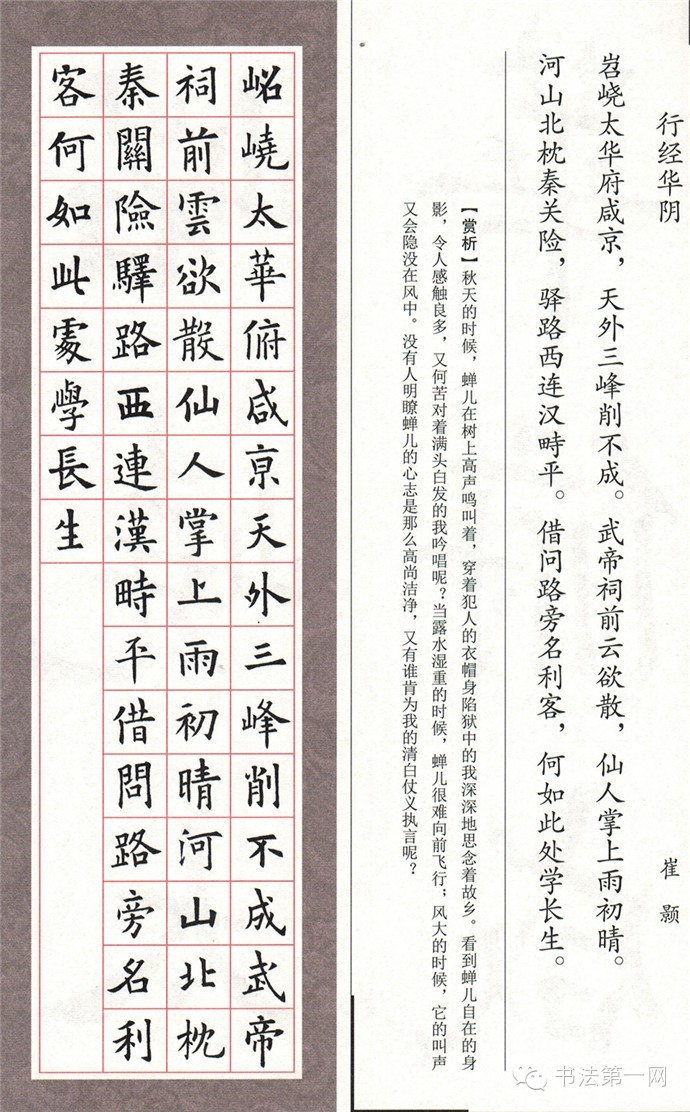 行经华阴
崔颢
岧峣太华府咸京，天外三峰削不成。武帝祠前云欲散，仙人掌上雨初晴。
河山北枕秦关险，驿路西连汉畤平。借问路旁名利客，何如此处学长生。
【赏析】秋天的时候，蝉儿在树上高声鸣叫着，穿着犯人的衣帽身陷狱中的我深深地思念着故乡。看到蝉儿自在的身
影，令人感触良多，又何苦对着满头白发的我吟唱呢？当露水湿重的时候，蝉儿很难向前飞行；风大的时候，它的叫声
又会隐没在风中。没有人明瞭蝉儿的心志是那么高尚洁净，又有谁肯为我的清白仗义执言呢？
岹嶢太華俯咸亰天外三峰削不成武帝
祠前雲欲散仙人掌上雨初晴河山北枕
秦關險驛路西連漢畤平借問路旁名利
客何如此處學長生
书法第一网